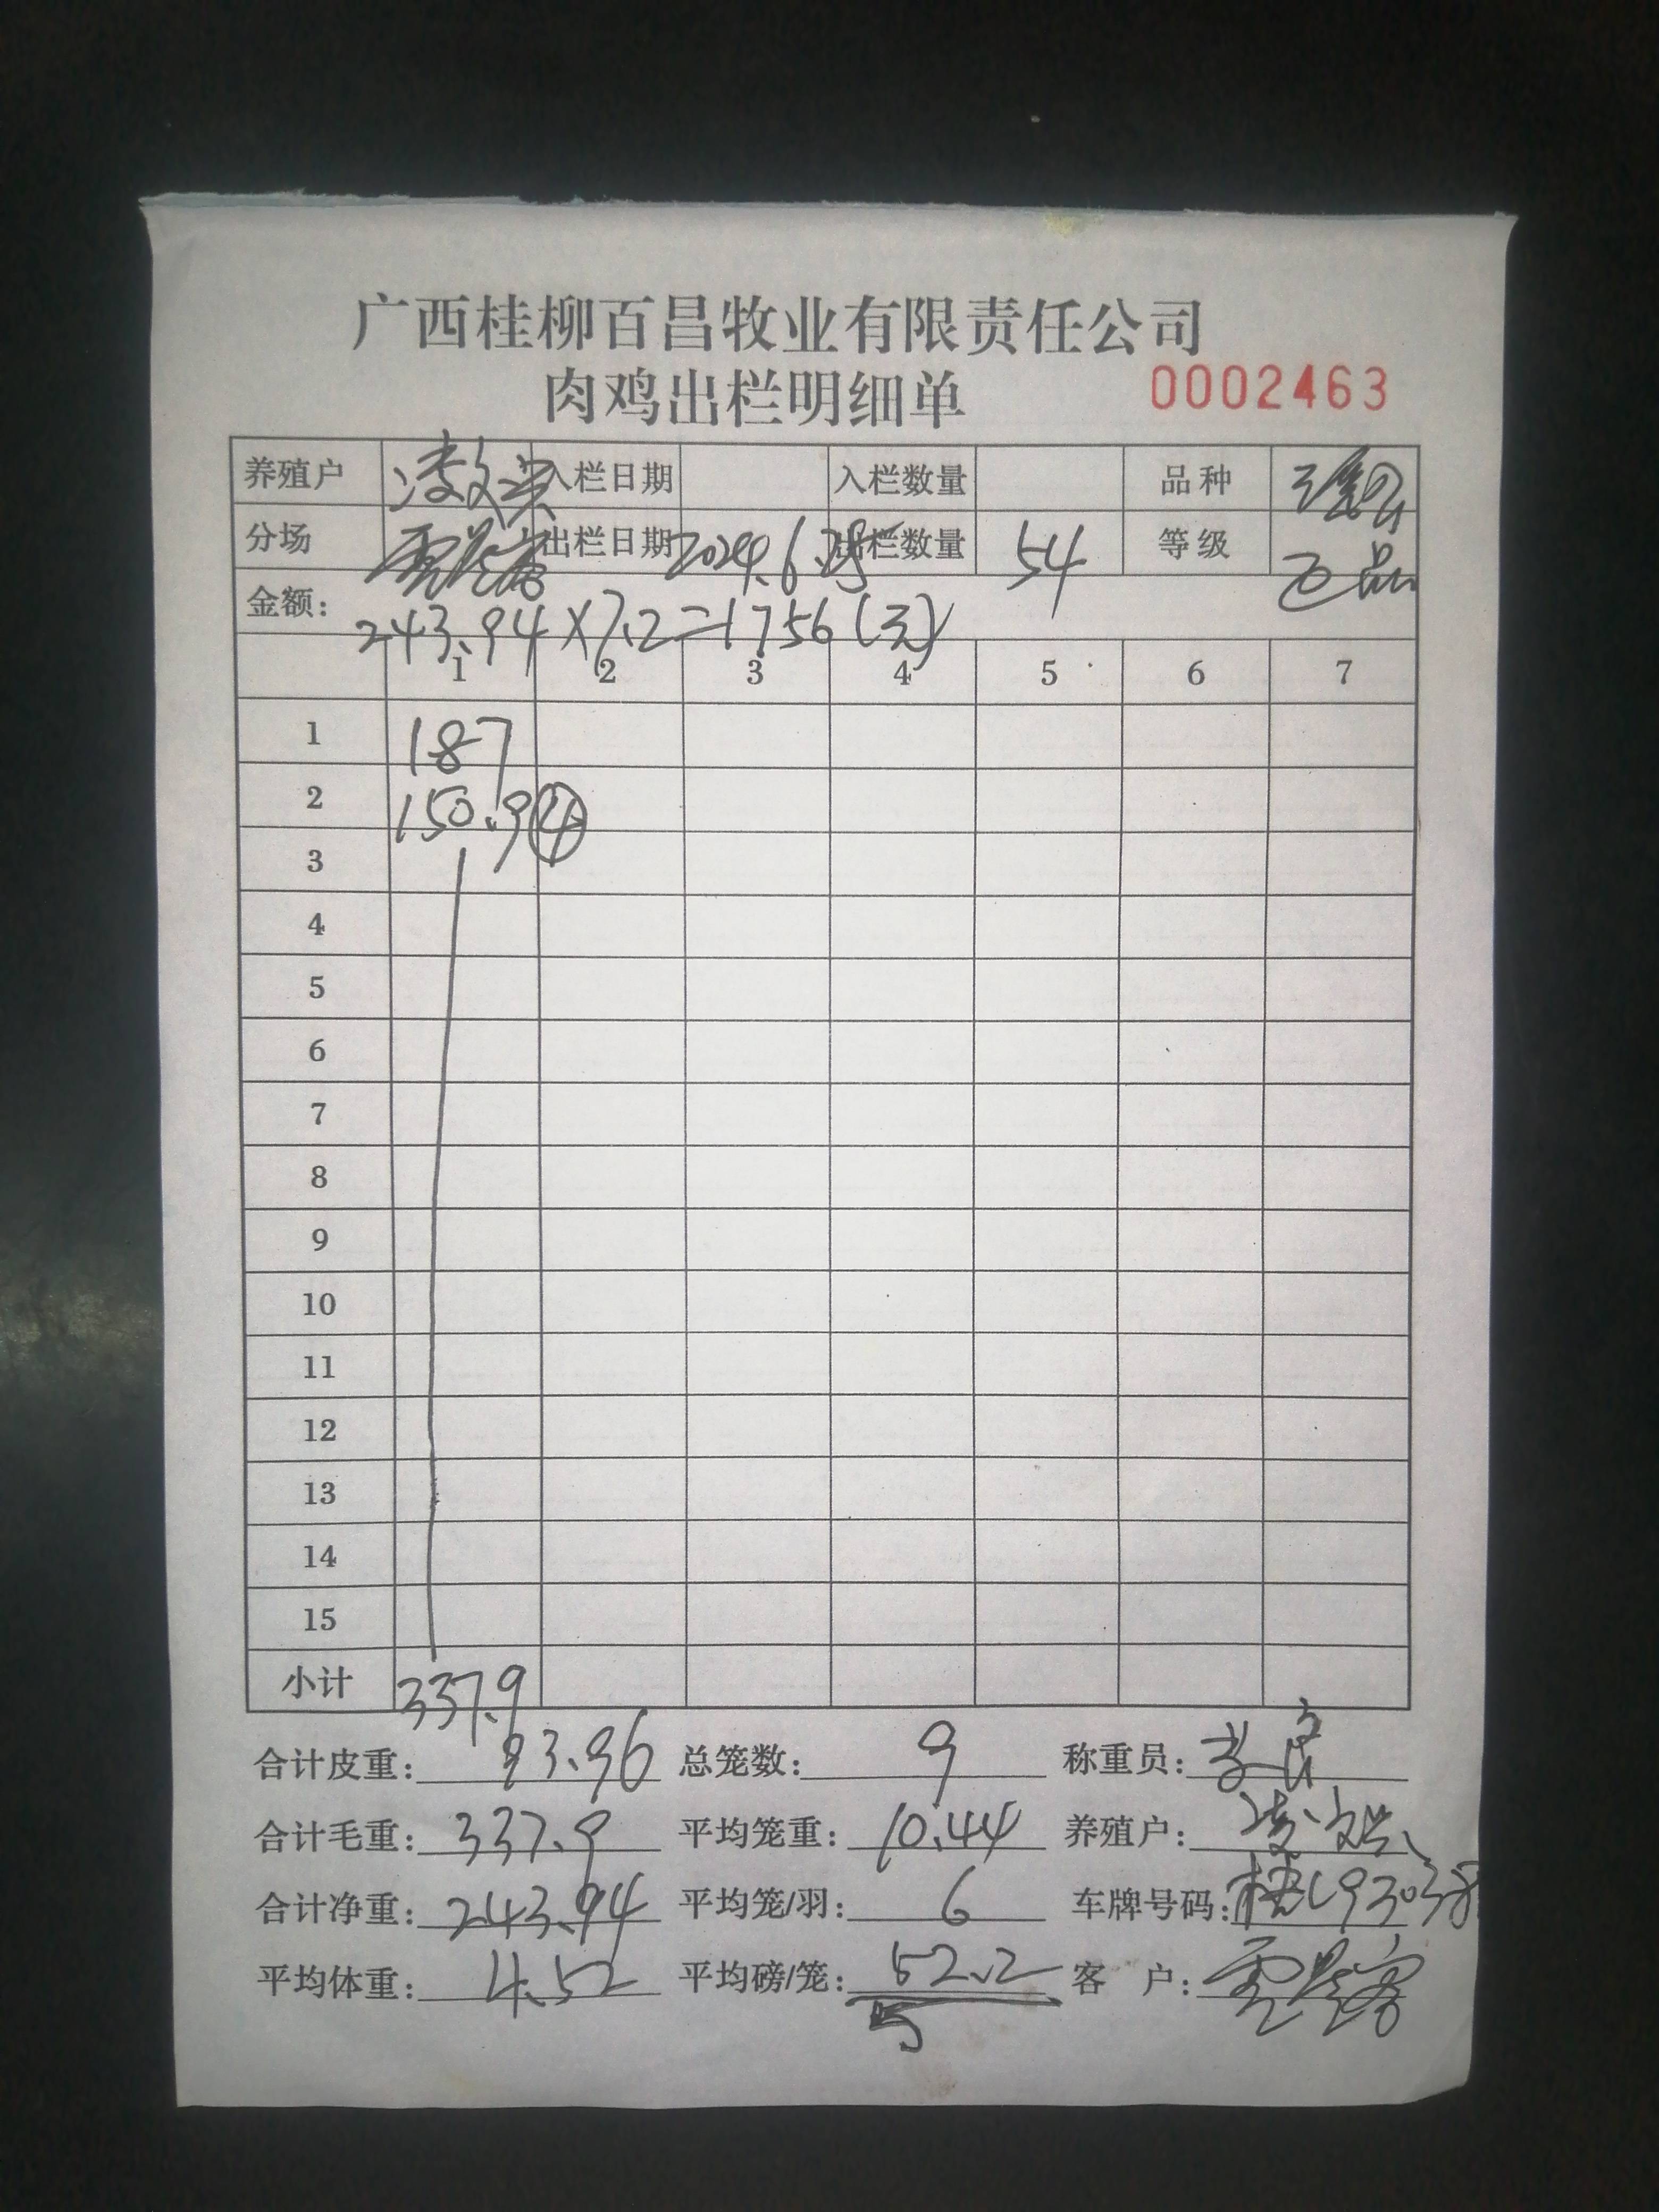 广西桂柳百昌牧业有限责任公司
肉鸡出栏明细单 0002463
养殖户 入栏日期 入栏数量 品种
分场 出栏日期 2024.6.25 出栏数量 54 等级
金额： 243.94×7.2=1756(元)
1 2 3 4 5 6 7
1 187
2 150.9 ④
3
4
5
6
7
8
9
10
11
12
13
14
15
小计 337.9
合计皮重： 93.96 总笼数： 9 称重员：
合计毛重： 337.9 平均笼重： 10.44 养殖户：
合计净重： 243.94 平均笼/羽： 6 车牌号码：
平均体重： 4.52 平均磅/笼： 52.2 客 户：
5